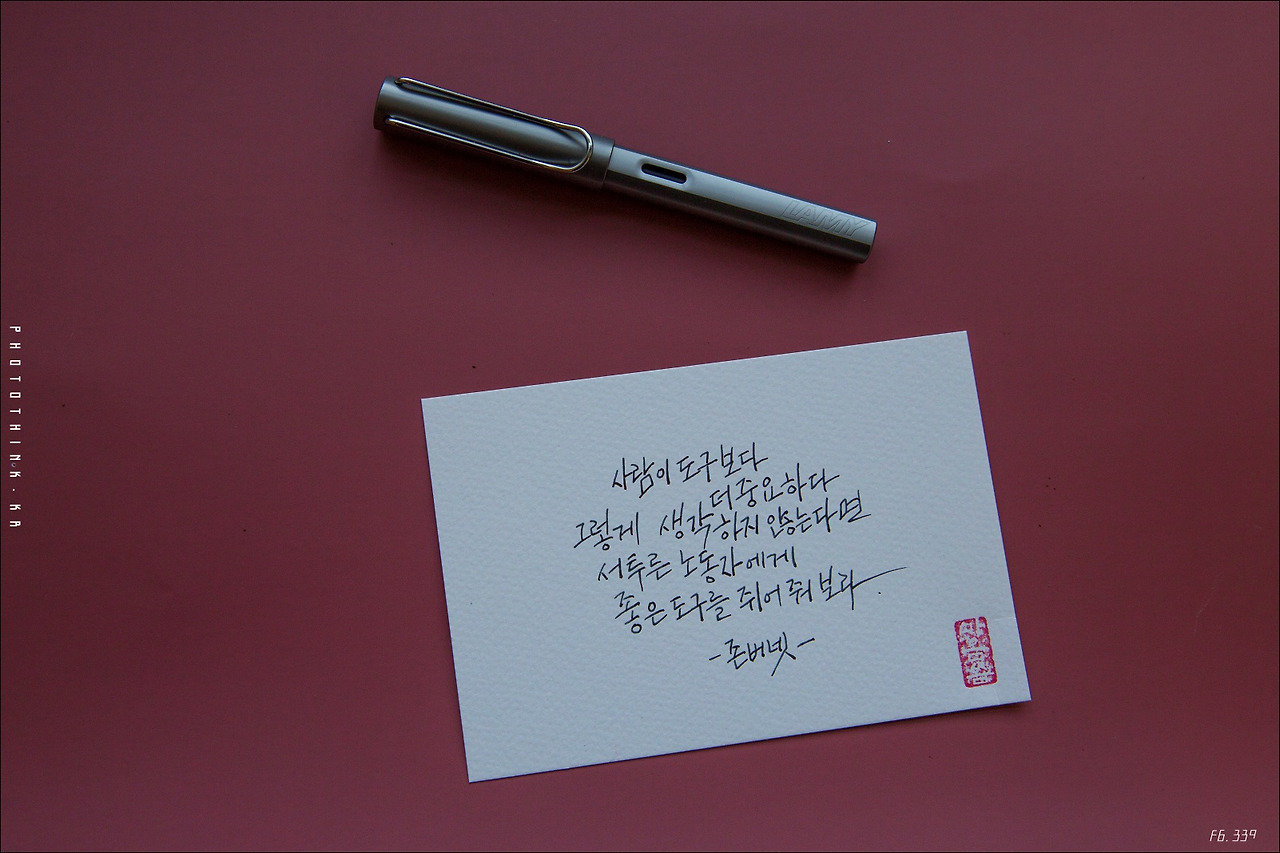 LAMY
사람이 도구보다
더 중요하다
그렇게 생각하지 않는다면
서투른 노동자에게
좋은 도구를 쥐어 줘 보라.
-존버넷-
PHOTOTHINK.KR
FG. 339